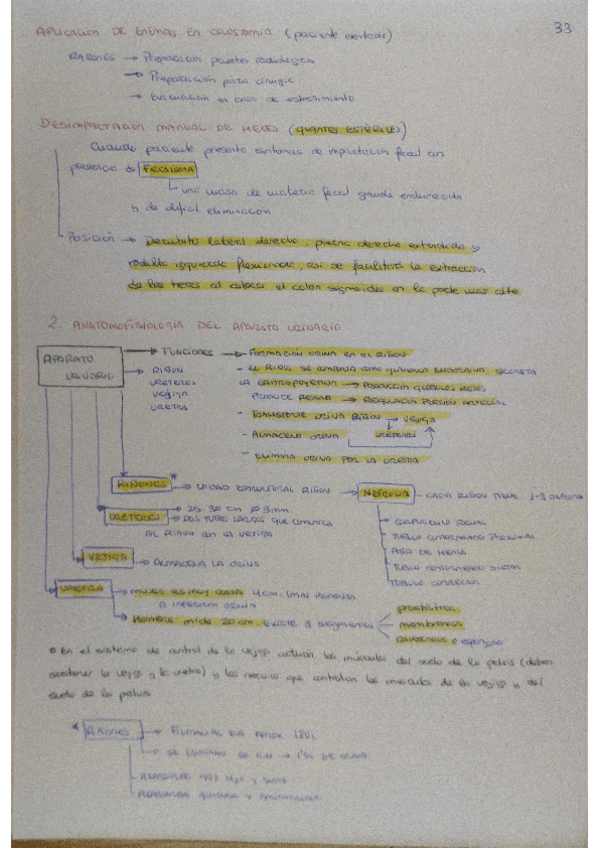 33
APLICACIÓN DE ENEMAS EN COLOSTOMIA (paciente sentado)
RAZONES → Preparación pruebas radiológicas
→ Preparación para cirugía
→ Evacuación en caso de estreñimiento
DESIMPACTACIÓN MANUAL DE HECES (GUANTES ESTÉRILES)
Cuando paciente presenta síntomas de impactación fecal con
presencia de FECALOMA
una masa de materia fecal grande endurecida
y de dificil eliminación
Posición → Decubito lateral derecho, pierna derecha extendida y
rodilla izquierda flexionada, así se facilitará la extracción
de las heces al colocar el colon sigmoides en la parte mas alta
2. ANATOMOFISIOLOGIA DEL APARATO URINARIO
APARATO URINARIO
→ FUNCIONES → FORMACIÓN ORINA EN EL RIÑON
→ RIÑON
URETERES
VEJIGA
URETRA
- EL RIÑON SE COMPORTA COMO GLANDULA ENDOCRINA SECRETA
LA ERITROPOYETINA → PRODUCCIÓN GLOBULOS ROJOS,
PRODUCE RENINA → REGULACIÓN PRESIÓN ARTERIAL
- TRANSPORTE ORINA RIÑON → VEJIGA
URETERES
- ALMACENA ORINA
- ELIMINA ORINA POR LA URETRA
RIÑONES * → UNIDAD ESTRUCTURAL RIÑON → NEFRONA - CADA RIÑON TIENE 1-3
CORPUSCULO RENAL
TUBULO CONTORNEADO PROXIMAL
ASA DE HENLE
TUBULO CONTORNEADO DISTAL
TUBULO COLECTOR
URETERES → 25-30 cm Ø 3mm
→ DOS TUBOS LARGOS QUE COMUNICA
AL RIÑON CON LA VEJIGA
VEJIGA → ALMACENA LA ORINA
URETRA → MUJER ES MUY CORTA 4cm. (MAS PROPENSA
A INFECCION ORINA
→ Hombre mide 20 cm. EXISTE 3 SEGMENTOS
prostática
membranosa
cavernosa o esponjosa
En el sistema de control de la vejiga actúan los músculos del suelo de la pelvis (deben
sostener la vejiga y la uretra) y los nervios que controlan los músculos de la vejiga y del
suelo de la pelvis.
* RIÑONES → FILTRAN AL DIA APROX 180l.
→ SE ELIMINAN → 1'5l DE ORINA.
REABSORBE 99% H₂O y SODIO
REABSORBE GLUCOSA Y AMINOACIDOS